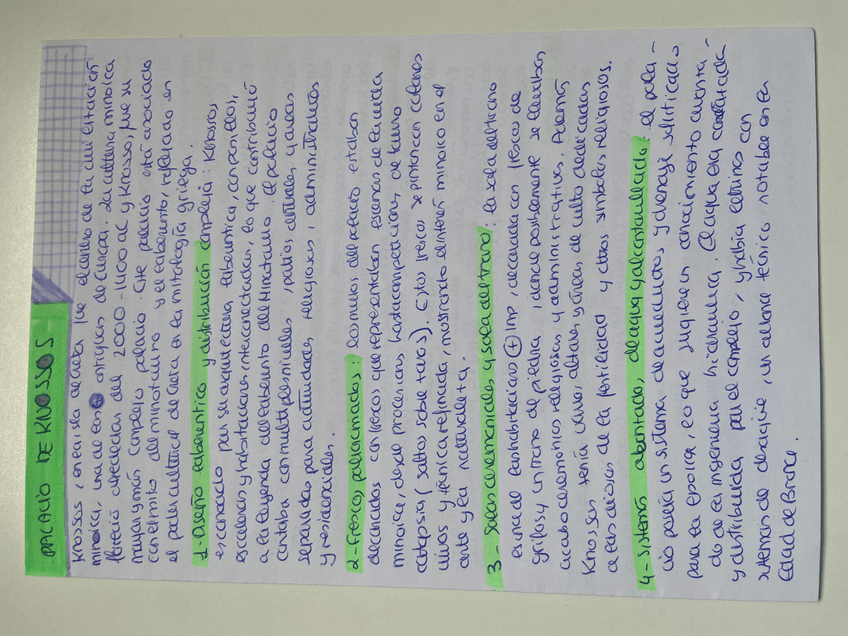 PALACIO DE KNOSSOS
Knossos, en la isla de Creta fue el centro de la civilización
minoica, una de las ⊕ antiguas de Europa. La cultura minoica
floreció alrededor del 2000-1400 AC y Knosso, fue su
mayor y más complejo palacio. Este palacio está asociado
con el mito del minotauro y el laberinto, reflejado en
el poder cultural de Creta en la mitología griega.
1- Diseño laberíntico y distribución compleja: Knossos
es conocido por su arquitectura laberíntica, con pasillos,
escaleras y habitaciones interconectadas, lo que contribuyó
a la leyenda del laberinto del Minotauro. El palacio
contaba con multiples niveles, patios centrales y areas
separadas para actividades religiosas, administrativas
y residenciales.
2- Frescos policromados: Los muros del palacio estaban
decorados con frescos que representaban escenas de la vida
minoica, desde procesiones hasta competiciones, de tauro
catapsia (saltos sobre toros). Estos frescos se pintan con colores
vivos y técnica refinada, mostrando el interés minoico en el
arte y la naturaleza.
3- Salas ceremoniales y sala del trono: la sala del trono
es una de las habitaciones ⊕ imp, decorada con frescos de
grifos y un trono de piedra, donde posiblemente se llevaban
a cabo ceremonias religiosas y administrativas. Además
Knossos tenía altares y áreas de culto dedicadas
a las diosas de la fertilidad y otros simbolos religiosos.
4- Sistemas de agua y alcantarillado: el pala-
cio poseía un sistema de acueductos y drenaje sofisticado
para la época, lo que sugiere un conocimiento avanza-
do de la ingeniería hidráulica. El agua era
y distribuida por el complejo, y había letrinas con
sistemas de desagüe, un avance técnico notable en la
Edad de Bronce.